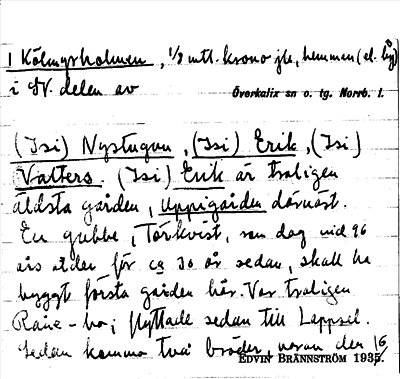 1 Kölmyrholmen, 1/8 mtl. krono jte, hemman (el. lhg)
i SV. delen av
Överkalix sn o. tg. Norrb. l.
(Isi) Nystugun, (Isi) Erik, (Isi)
Vatters. (Isi) Erik är troligen
äldsta gården, Uppigården därnäst.
En gubbe, Törkvist, som dog vid 96
års ålder för ca 30 år sedan, skall ha
byggt första gården här. Var troligen
Rane-bo; flyttade sedan till Lappsel.
Sedan kommo två bröder, varav den 16
EDVIN BRÄNNSTRÖM 1935.